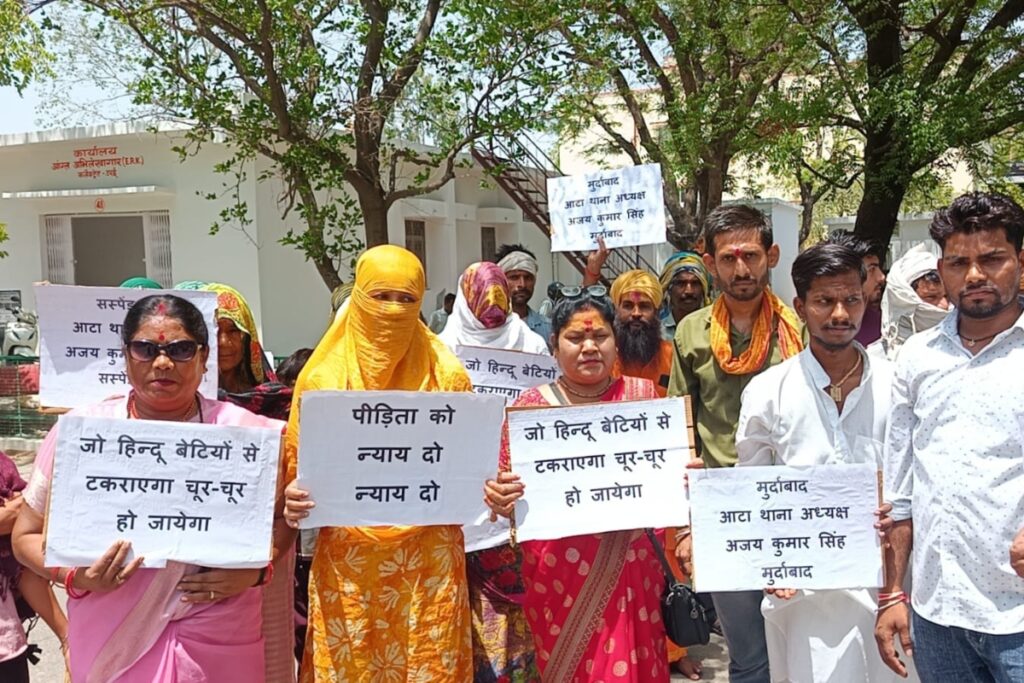 कार्यालय
आंग्ल अभिलेखागार (ERK)
कलेक्ट्रेट - उरई
मुर्दाबाद
आटा थाना अध्यक्ष
अजय कुमार सिंह
मुर्दाबाद
सस्पें
आटा था
अजय कुमा
सस्पें
जो हिन्दू बेटियों
टकराएगा
जो हिन्दू बेटियों से
टकराएगा चूर-चूर
हो जायेगा
पीड़िता को
न्याय दो
न्याय दो
जो हिन्दू बेटियों से
टकराएगा चूर-चूर
हो जायेगा
मुर्दाबाद
आटा थाना अध्यक्ष
अजय कुमार सिंह
मुर्दाबाद